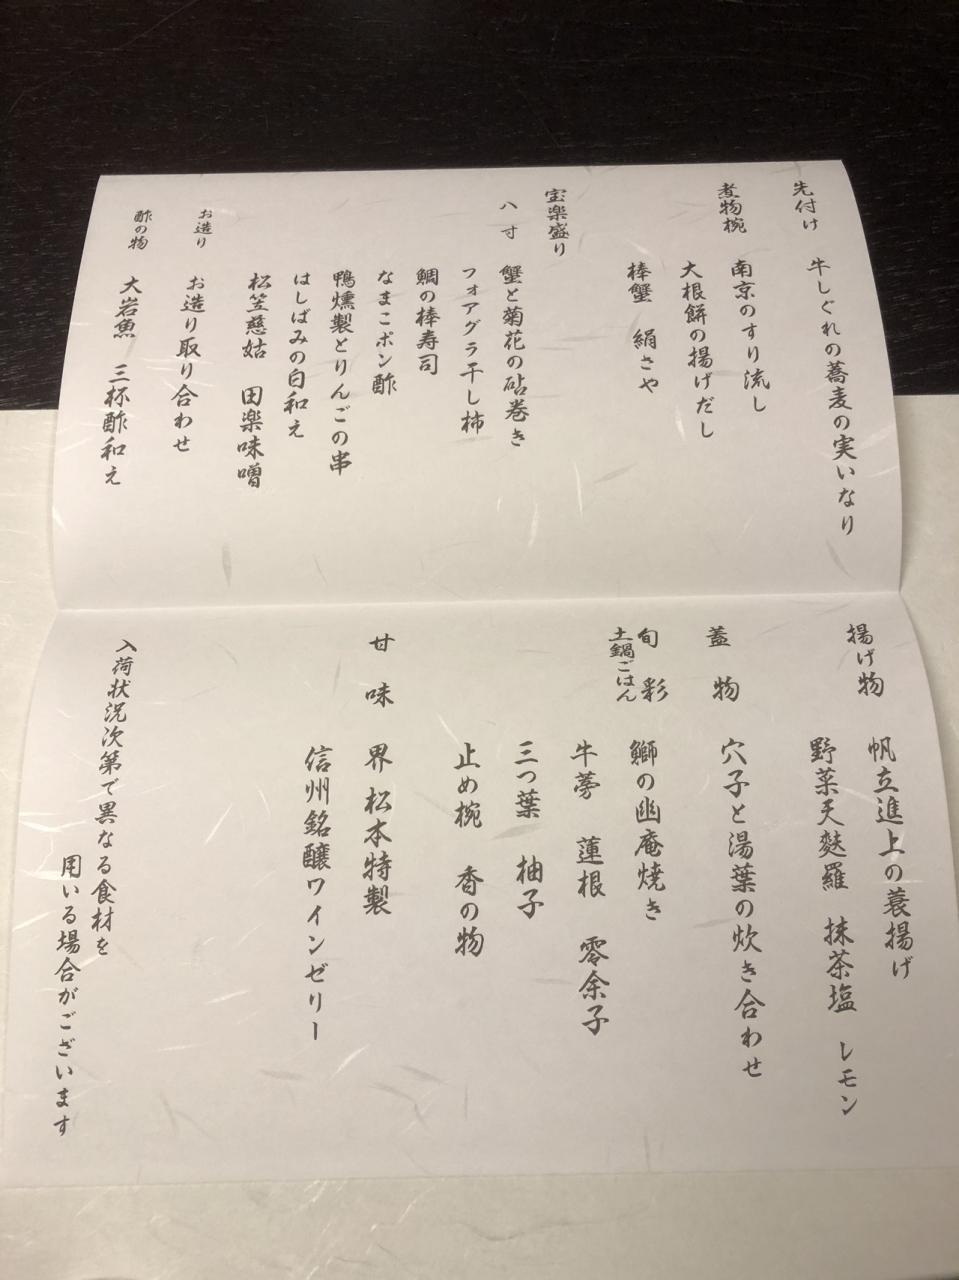 先付け
牛しぐれの蕎麦の実いなり
煮物椀
南京のすり流し
大根餅の揚げだし
棒蟹　絹さや
宝楽盛り
八寸
蟹と菊花の砧巻き
フォアグラ干し柿
鯛の棒寿司
なまこポン酢
鴨燻製とりんごの串
はしばみの白和え
松笠慈姑　田楽味噌
お造り
お造り取り合わせ
酢の物
大岩魚　三杯酢和え
揚げ物
帆立進上の蓑揚げ
野菜天麩羅　抹茶塩　レモン
蓋物
穴子と湯葉の炊き合わせ
旬彩
土鍋ごはん
鰤の幽庵焼き
牛蒡　蓮根　零余子
三つ葉　柚子
止め椀　香の物
甘味
界　松本特製
信州銘醸ワインゼリー
入荷状況次第で異なる食材を
用いる場合がございます